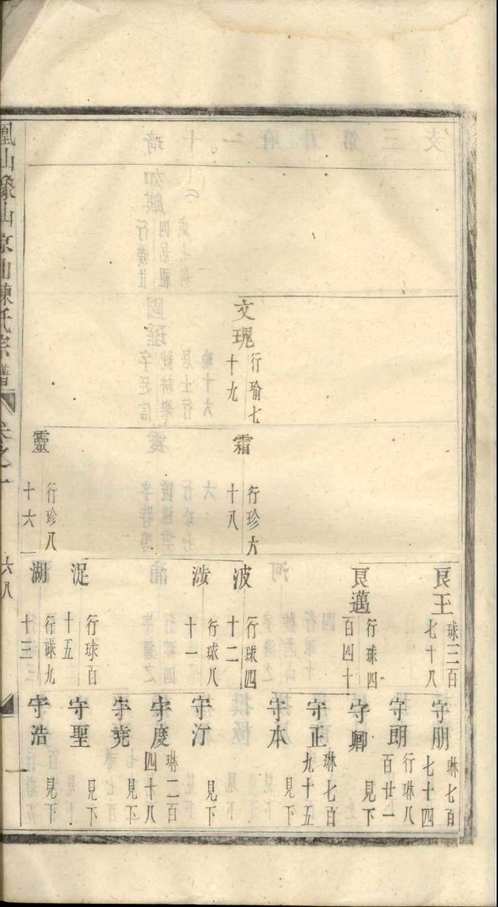 文瑰
行瑜七
十九
霜
行珍六
十八
靈
行珍八
十六
良王
球三百
七十八
良邁
行球四
百四十
波
行球四
十二
行球八
十一
浞
行球百
十五
湖
行球九
十三
守朋
琳七百
七十四
守朗
行琳八
百廿一
守卿
見下
守正
琳七百
九十五
守本
見下
守汀
見下
守度
琳二百
四十八
守堯
見下
守聖
見下
守浩
見下
山陳氏宗譜
卷之一
六八